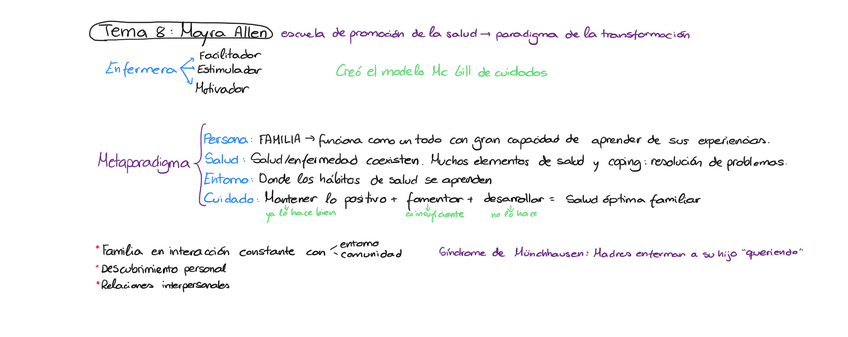 Tema 8: Mayra Allen escuela de promoción de la salud → paradigma de la transformación
Facilitador
Enfermera Estimulador
Motivador
Creó el modelo Mc Gill de cuidados
Persona: FAMILIA → funciona como un todo con gran capacidad de aprender de sus experiencias.
Metaparadigma
Salud: Salud/enfermedad coexisten. Muchos elementos de salud y coping: resolución de problemas.
Entorno: Donde los hábitos de salud se aprenden
Cuidado: Mantener lo positivo + fomentar + desarrollar = Salud óptima familiar
ya lo hace bien es insuficiente no lo hace
*Familia en interacción constante con entorno
comunidad
Síndrome de Münchhausen: Madres enferman a su hijo "queriendo"
*Descubrimiento personal
*Relaciones interpersonales